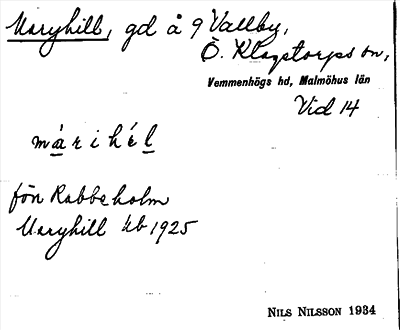 Maryhill, gd å 9 Vallby,
Ö. Klagstorps sn,
Vemmenhögs hd, Malmöhus län
Vid 14
márihél
fön Rabbeholm
Maryhill kb 1925
NILS NILSSON 1934